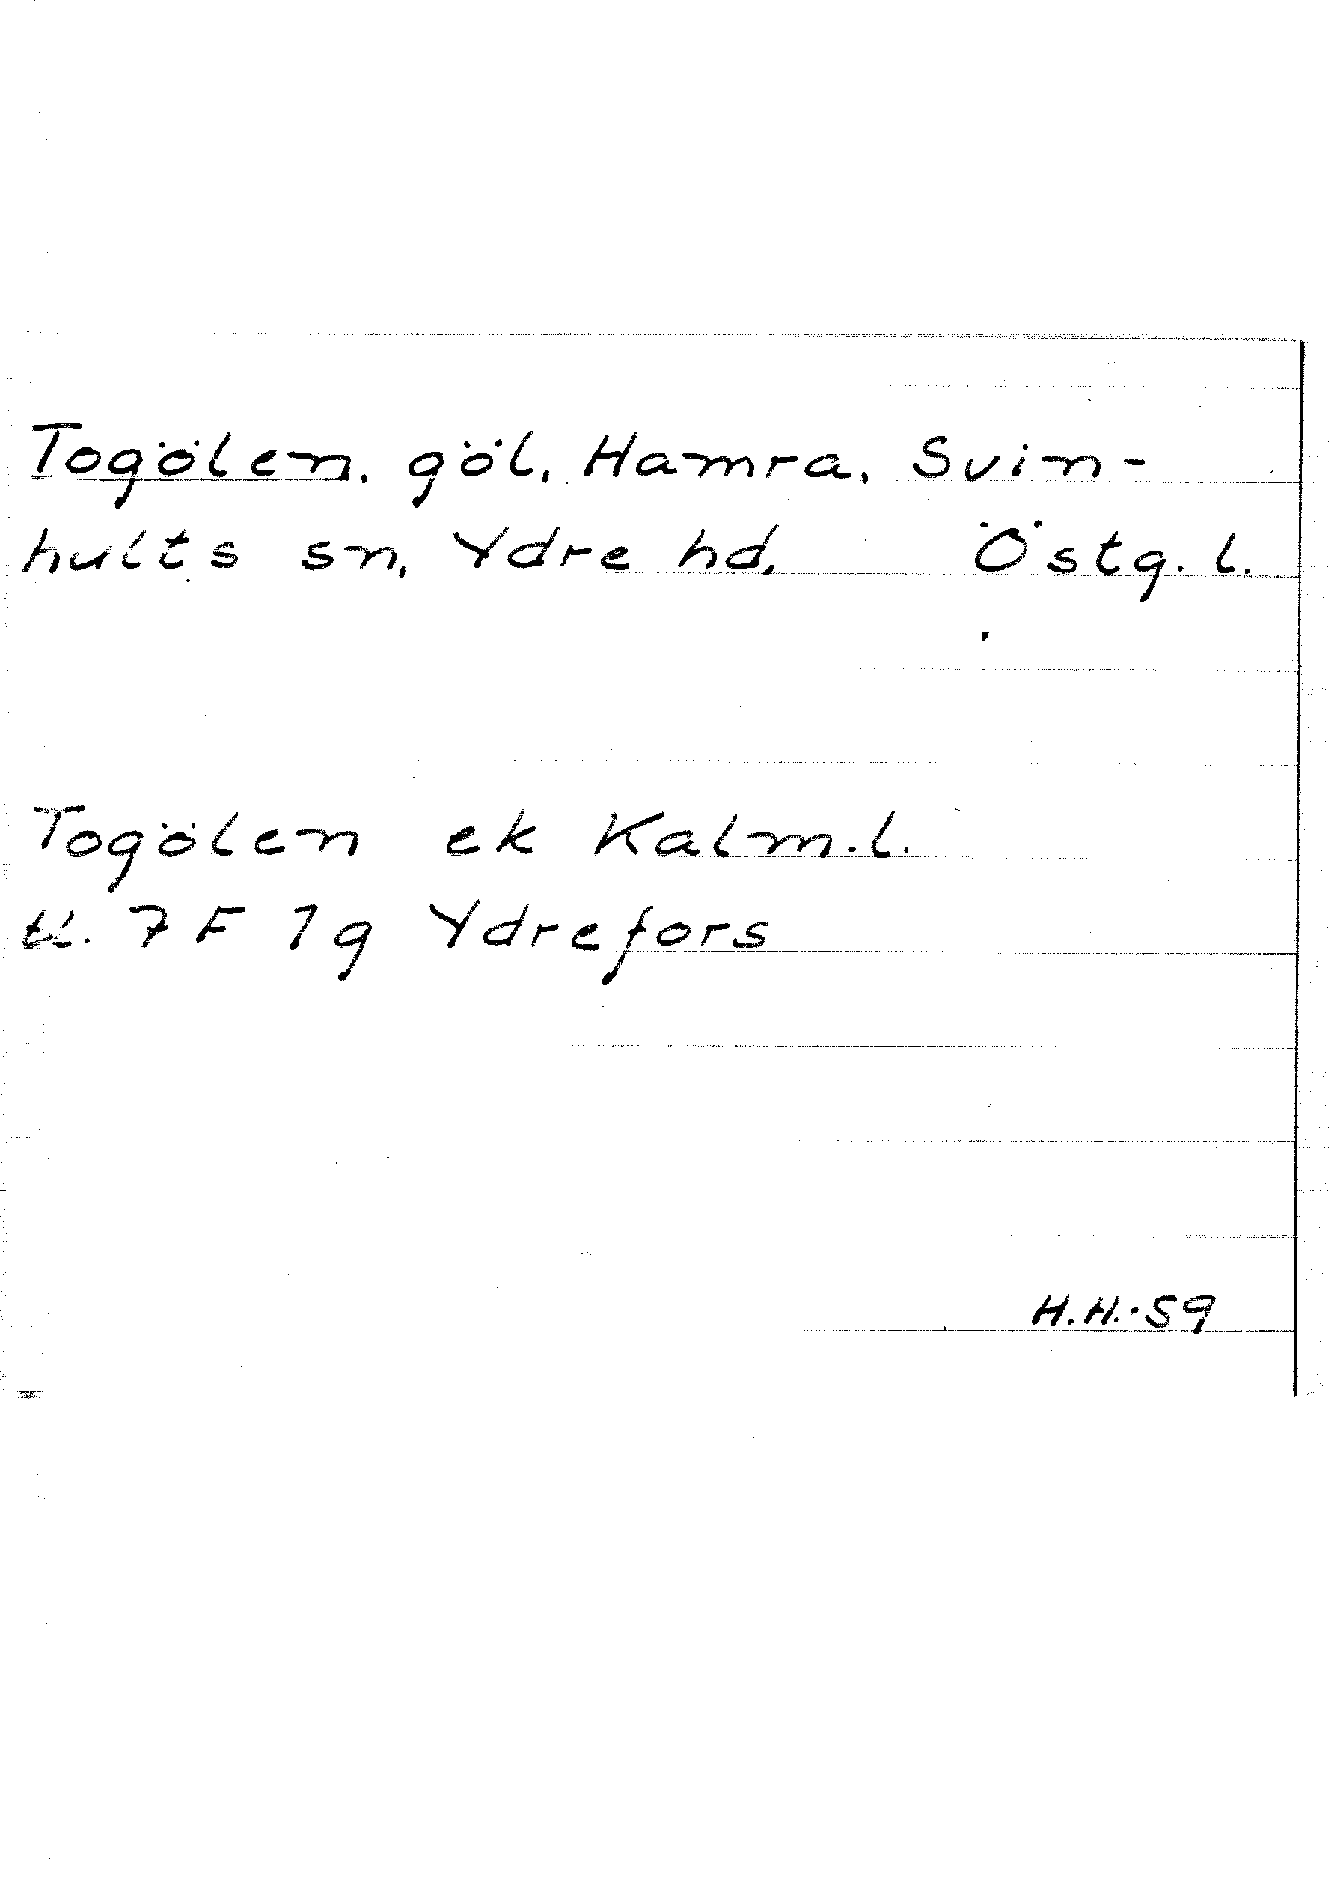 Togölen, göl, Hamra, Svin-
hults sn, Ydre hd, Östg. l.
Togölen ek Kalm. l.
bl. 7 F 1g Ydrefors
H.H.-59